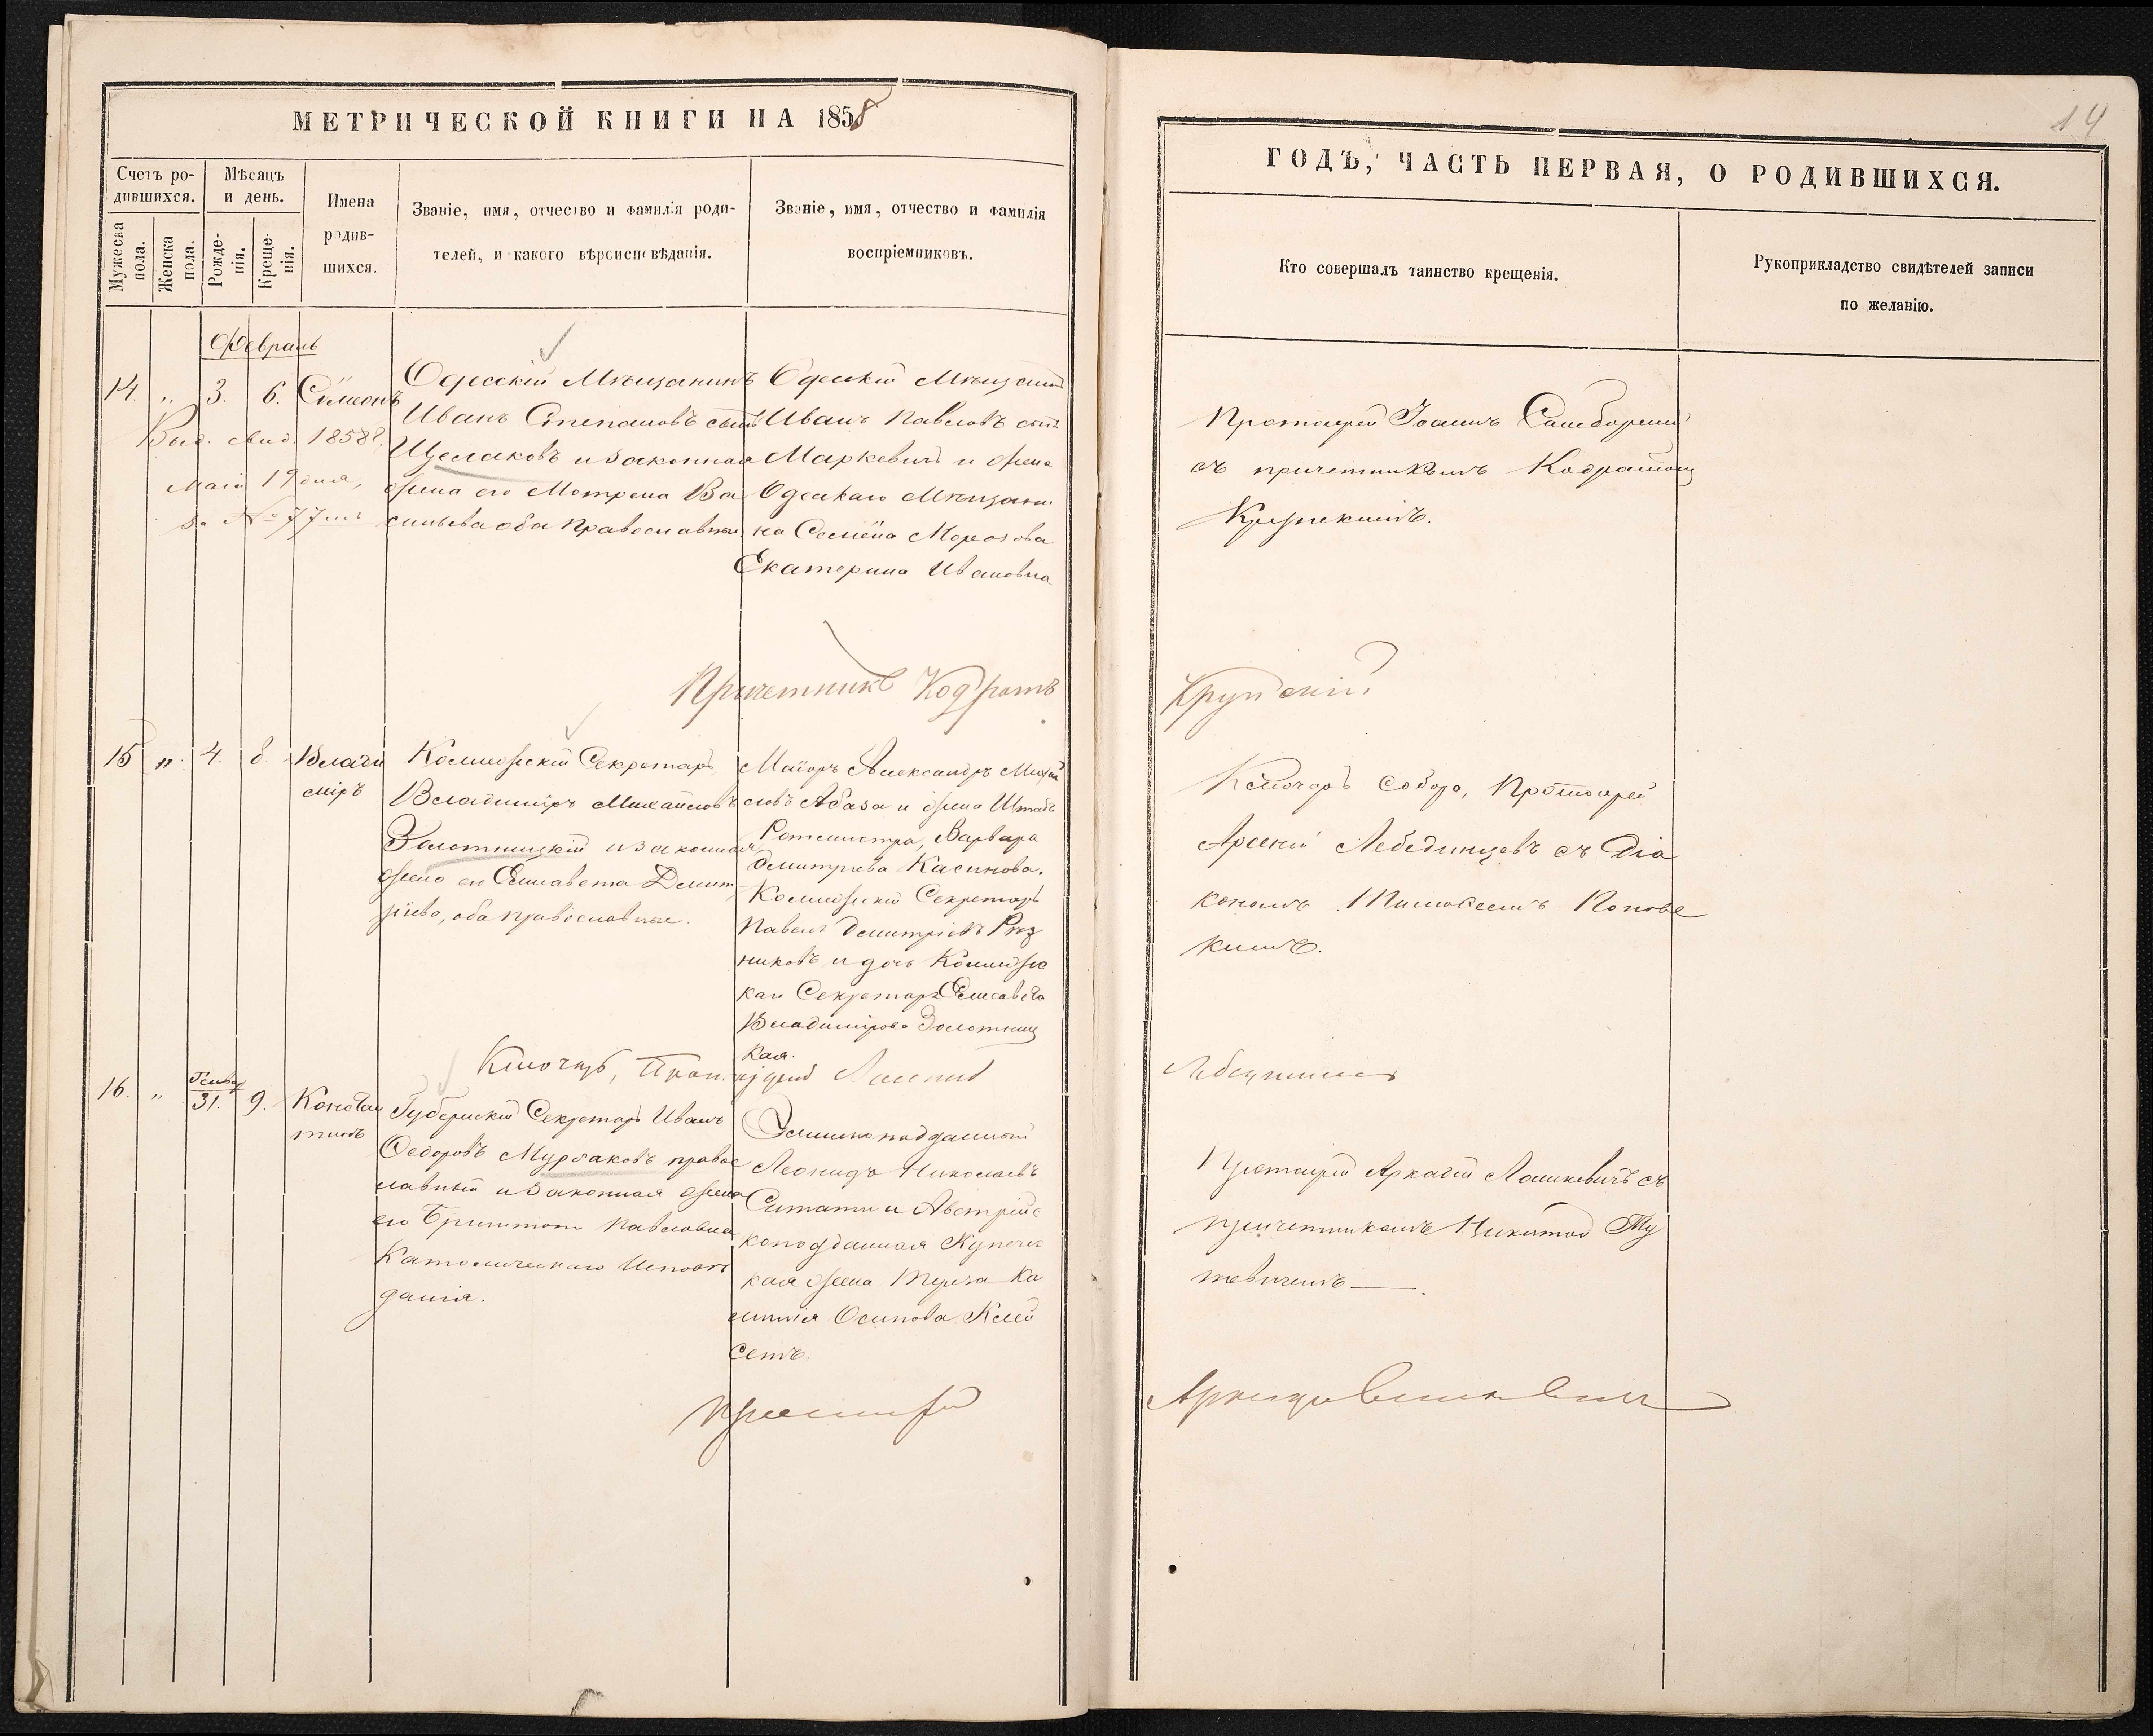 МЕТРИЧЕСКОЙ КНИГИ НА 1858
Счетъ ро-
дившихся.
Мужеска
пола.
Женска
пола.
Мѣсяцъ
и день.
Рожде-
нія.
Креще-
нія.
Имена
родив-
шихся.
Званіе, имя, отчество и фамилія роди-
телей, и какого вѣроисповѣданія.
Званіе, имя, отчество и фамилія
воспріемниковъ.
Февраль
14. „ 3. 6. Сѵмеонъ
Выд. свид. 1858 г.
мая 19 дня,
за № 77мъ
Одесскій Мѣщанинъ
Иванъ Степановъ сынъ
Щеглаковъ и законная
жена его Мотрона Ва
сильева оба православные
Одесскій Мѣщанинъ
Иванъ Павловъ сынъ
Маркевичъ и жена
Одесскаго Мѣщани
на Семёна Морозова
Екатерина Ивановна
Причетникъ Кодратъ
15 „ 4. 8. Влади
міръ
Коллежскій Секретарь
Владиміръ Михайловъ
Золотницкій и законная
жена его Елисавета Димит
ріева, оба православные.
Маіоръ Александръ Михай
ловъ Абаза и жена Штабъ
Ротмистра, Варвара
Димитріева Касинова.
Коллежскій Секретарь
Павелъ Димитріевъ Рѣз
никовъ и дочь Коллежс
каго Секретаря Елисавета
Владимірова Золотниц
кая.
Ключарь,
16. „ Генвар 31. 9. Констан
тинъ
Губернскій Секретарь Иванъ
Федоровъ Мурзаковъ правос
лавный и законная жена
его Павловна
Католическаго Исповѣ
данія.
Леонидъ Николаевъ
и Австрійс
коподданная Купечес
кая жена Тереза Ка
Осипова
Протоіерей
14
ГОДЪ, ЧАСТЬ ПЕРВАЯ, О РОДИВШИХСЯ.
Кто совершалъ таинство крещенія.
Рукоприкладство свидѣтелей записи
по желанію.
Протоіерей Іоаннъ Самборскій
съ причетникомъ Кодратомъ
Крупскимъ.
Крупскій
Ключарь собора, Протоіерей
Арсеній Лебединцевъ съ Діа
кономъ Тимоѳеемъ Попове
кимъ.
Лебединцевъ
Протоіерей Аркадій Лашкевичъ съ
причетникомъ Никитою Ту
товичемъ.